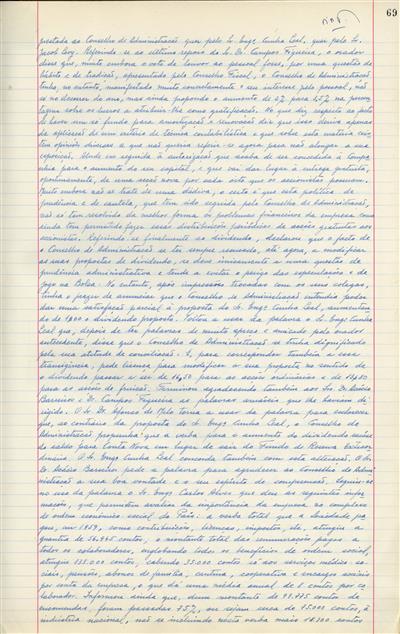 69
prestada ao Conselho de Administração quer pelo Sr. Engº Cunha Leal, quer pelo Sr.
Jacob Levy. Referindo-se ao último reparo do Sr. Dr. Campos Figueira, o orador
disse que, muito embora o voto de louvor ao pessoal fosse, por uma questão de
hábito e de tradição, apresentado pelo Conselho Fiscal, o Conselho de Administração
tinha, no entanto, manifestado muito concretamente o seu interesse pelo pessoal, não
só no decorrer do ano, mas ainda propondo o aumento de 2% para 2,5% na percen
tagem sobre os lucros a atribuir-lhe como gratificação. No que diz respeito ao facto
de haver um só fundo para amortização e renovação diz que isso deriva apenas
da aplicação de um critério de técnica contabilística e que sobre esta matéria exis
tem opiniões diversas a que não queria referir-se agora para não alongar a sua
exposição. Alude em seguida à autorização que acaba de ser concedida à Compa
nhia para o aumento do seu capital, o que vai dar lugar à entrega gratuita,
oportunamente, de uma acção nova por cada oito que os accionistas possuam.
Muito embora não se trate de uma dádiva, o certo é que esta política de
prudência e de cautela, que tem sido seguida pelo Conselho de Administração,
não só tem resolvido da melhor forma os problemas financeiros da empresa como
ainda tem permitido fazer essas distribuições periódicas de acções gratuitas aos
accionistas. Referindo-se finalmente ao dividendo, declarou que o facto de
o Conselho de Administração se ter sempre recusado, até agora, a modificar
as suas propostas de dividendo, se deve unicamente a uma questão de
prudência administrativa e tende a evitar o perigo das especulações e do
jogo na Bolsa. No entanto, após impressões trocadas com os seus colegas,
tinha o prazer de anunciar que o Conselho de Administração entendia poder
dar uma satisfação parcial à proposta do Sr. Engº Cunha Leal, aumentan
do de 1$00 o dividendo proposto. Voltou a usar da palavra o Sr. Engº Cunha
Leal que, depois de ter palavras de muito apreço e amizade pelo orador
antecedente, disse que o Conselho de Administração se tinha dignificado
pela sua atitude de conciliação. E, para corresponder também a essa
transigência, pede licença para modificar a sua proposta no sentido de
o dividendo passar a ser de para as acções ordinárias e de
para as acções de fruição. Terminou agradecendo também aos Srs. Dr. Acácio
Barreiro e Dr. Campos Figueira as palavras amáveis que lhe haviam di
rigido. O Sr. Dr. Afonso de Melo torna a usar da palavra para esclarecer
que, ao contrário da proposta do Sr. Engº Cunha Leal, o Conselho de
Administração propunha que a verba para o aumento do dividendo saísse
do saldo para Conta Nova em lugar de sair do Fundo de Reserva Extraor
dinária. O Sr. Engº Cunha Leal concorda também com esta alteração. O Sr.
Dr. Acácio Barreiro pede a palavra para agradecer ao Conselho de Admi
nistração a sua boa vontade e o seu espírito de compreensão. Seguiu-se
no uso da palavra o Sr. Engº Carlos Alves que deu as seguintes infor
mações, que permitem avaliar da importância da empresa no complexo
de ordem económico-social do País: a verba total que a Sociedade pa
gou, em 1959, como contribuições, licenças, impostos, etc., atingiu a
quantia de 56.445 contos; o montante total das remunerações pagas a
todos os colaboradores, englobando todos os benefícios de ordem social,
atingiu 135.000 contos, cabendo 35.000 contos só aos serviços médico-so
ciais, pensões, abonos de família, cantina, cooperativa e encargos sociais
por conta da empresa, o que dá uma média anual de 8 contos por co
laborador. Informou ainda que, dum montante de 99.775 contos de
encomendas, foram passadas 75%, ou sejam cerca de 75.000 contos, à
indústria nacional, não se incluindo nesta verba mais 18.700 contos